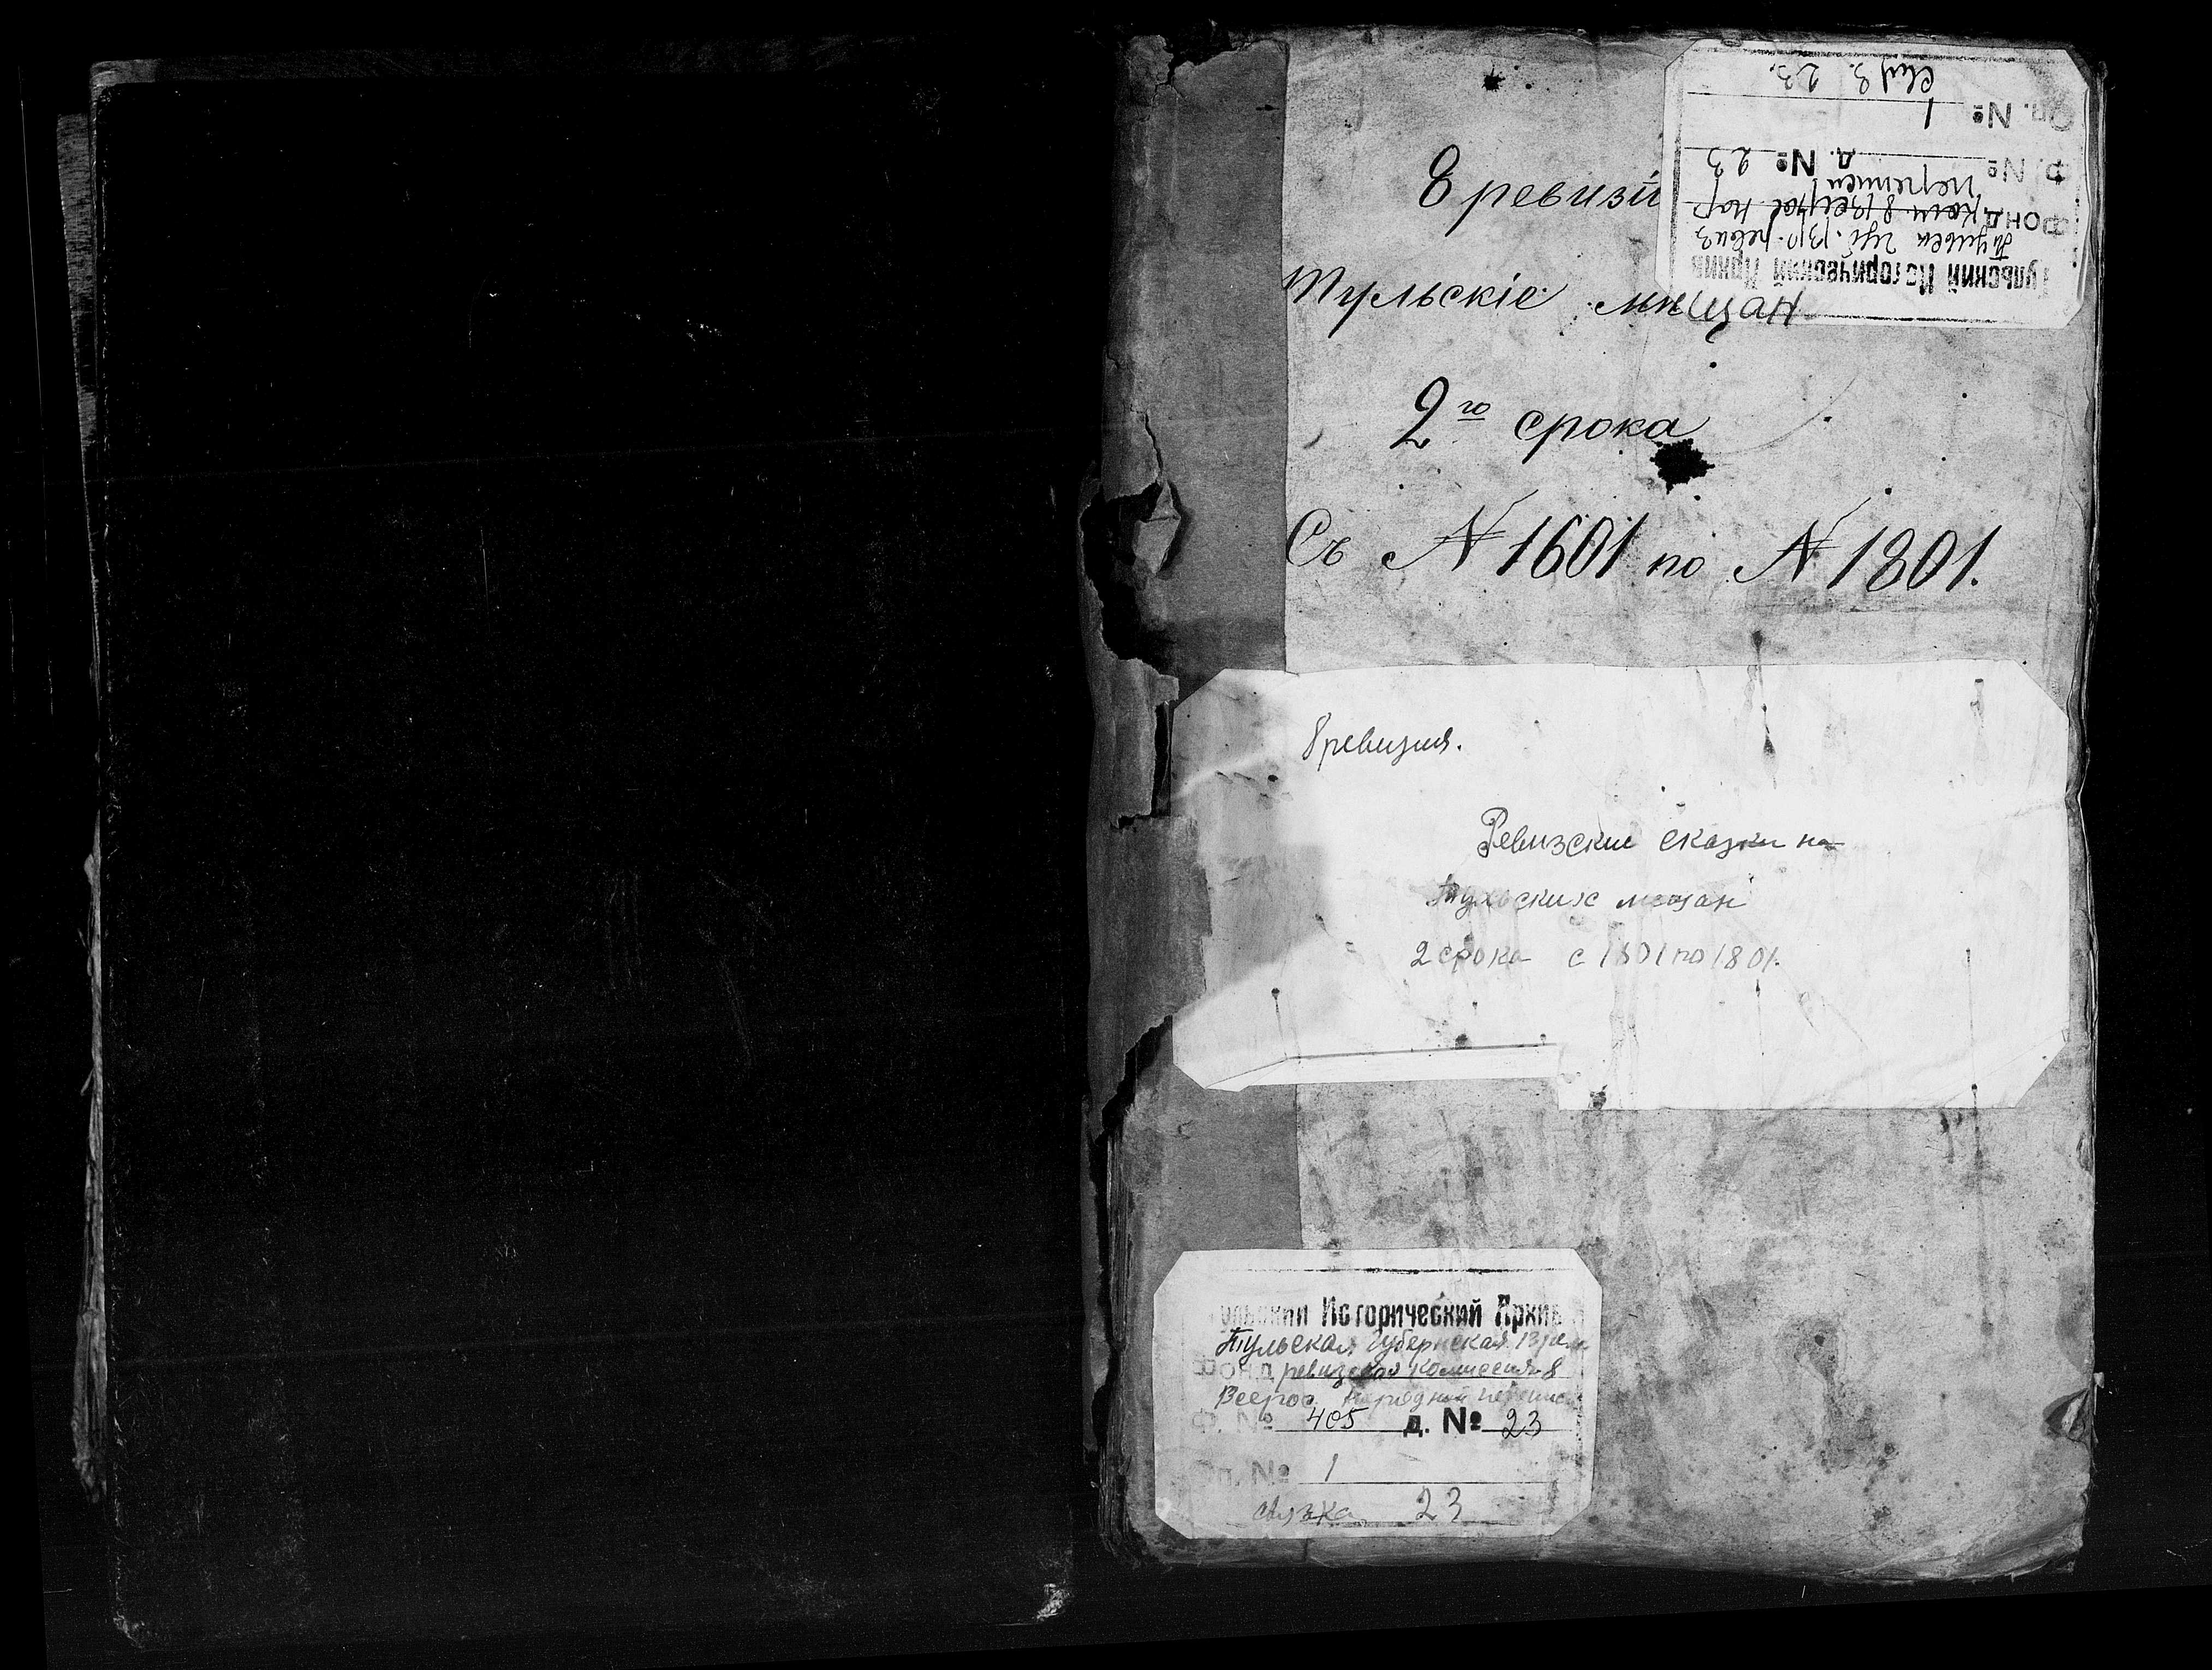 8 ревизіи
Тульскіе мѣщан
2го срока
Съ № 1601 по № 1801.
Тульский Исторический Архив
Тульск губ. вр. ревиз
Фонд ком. 8 Всерос нар
переписи
Ф. № д. № 23
Оп. № 1
связ. 23.
8 ревизия.
Ревизские сказки на
Тульских мещан
2 срока с 1601 по 1801.
ульский Исторический Архив
Тульская Губернская Врем
Фонд ревизская комиссия 8
Всерос. Народной переписи
Ф. № 405 д. № 23
Оп. № 1
связка 23